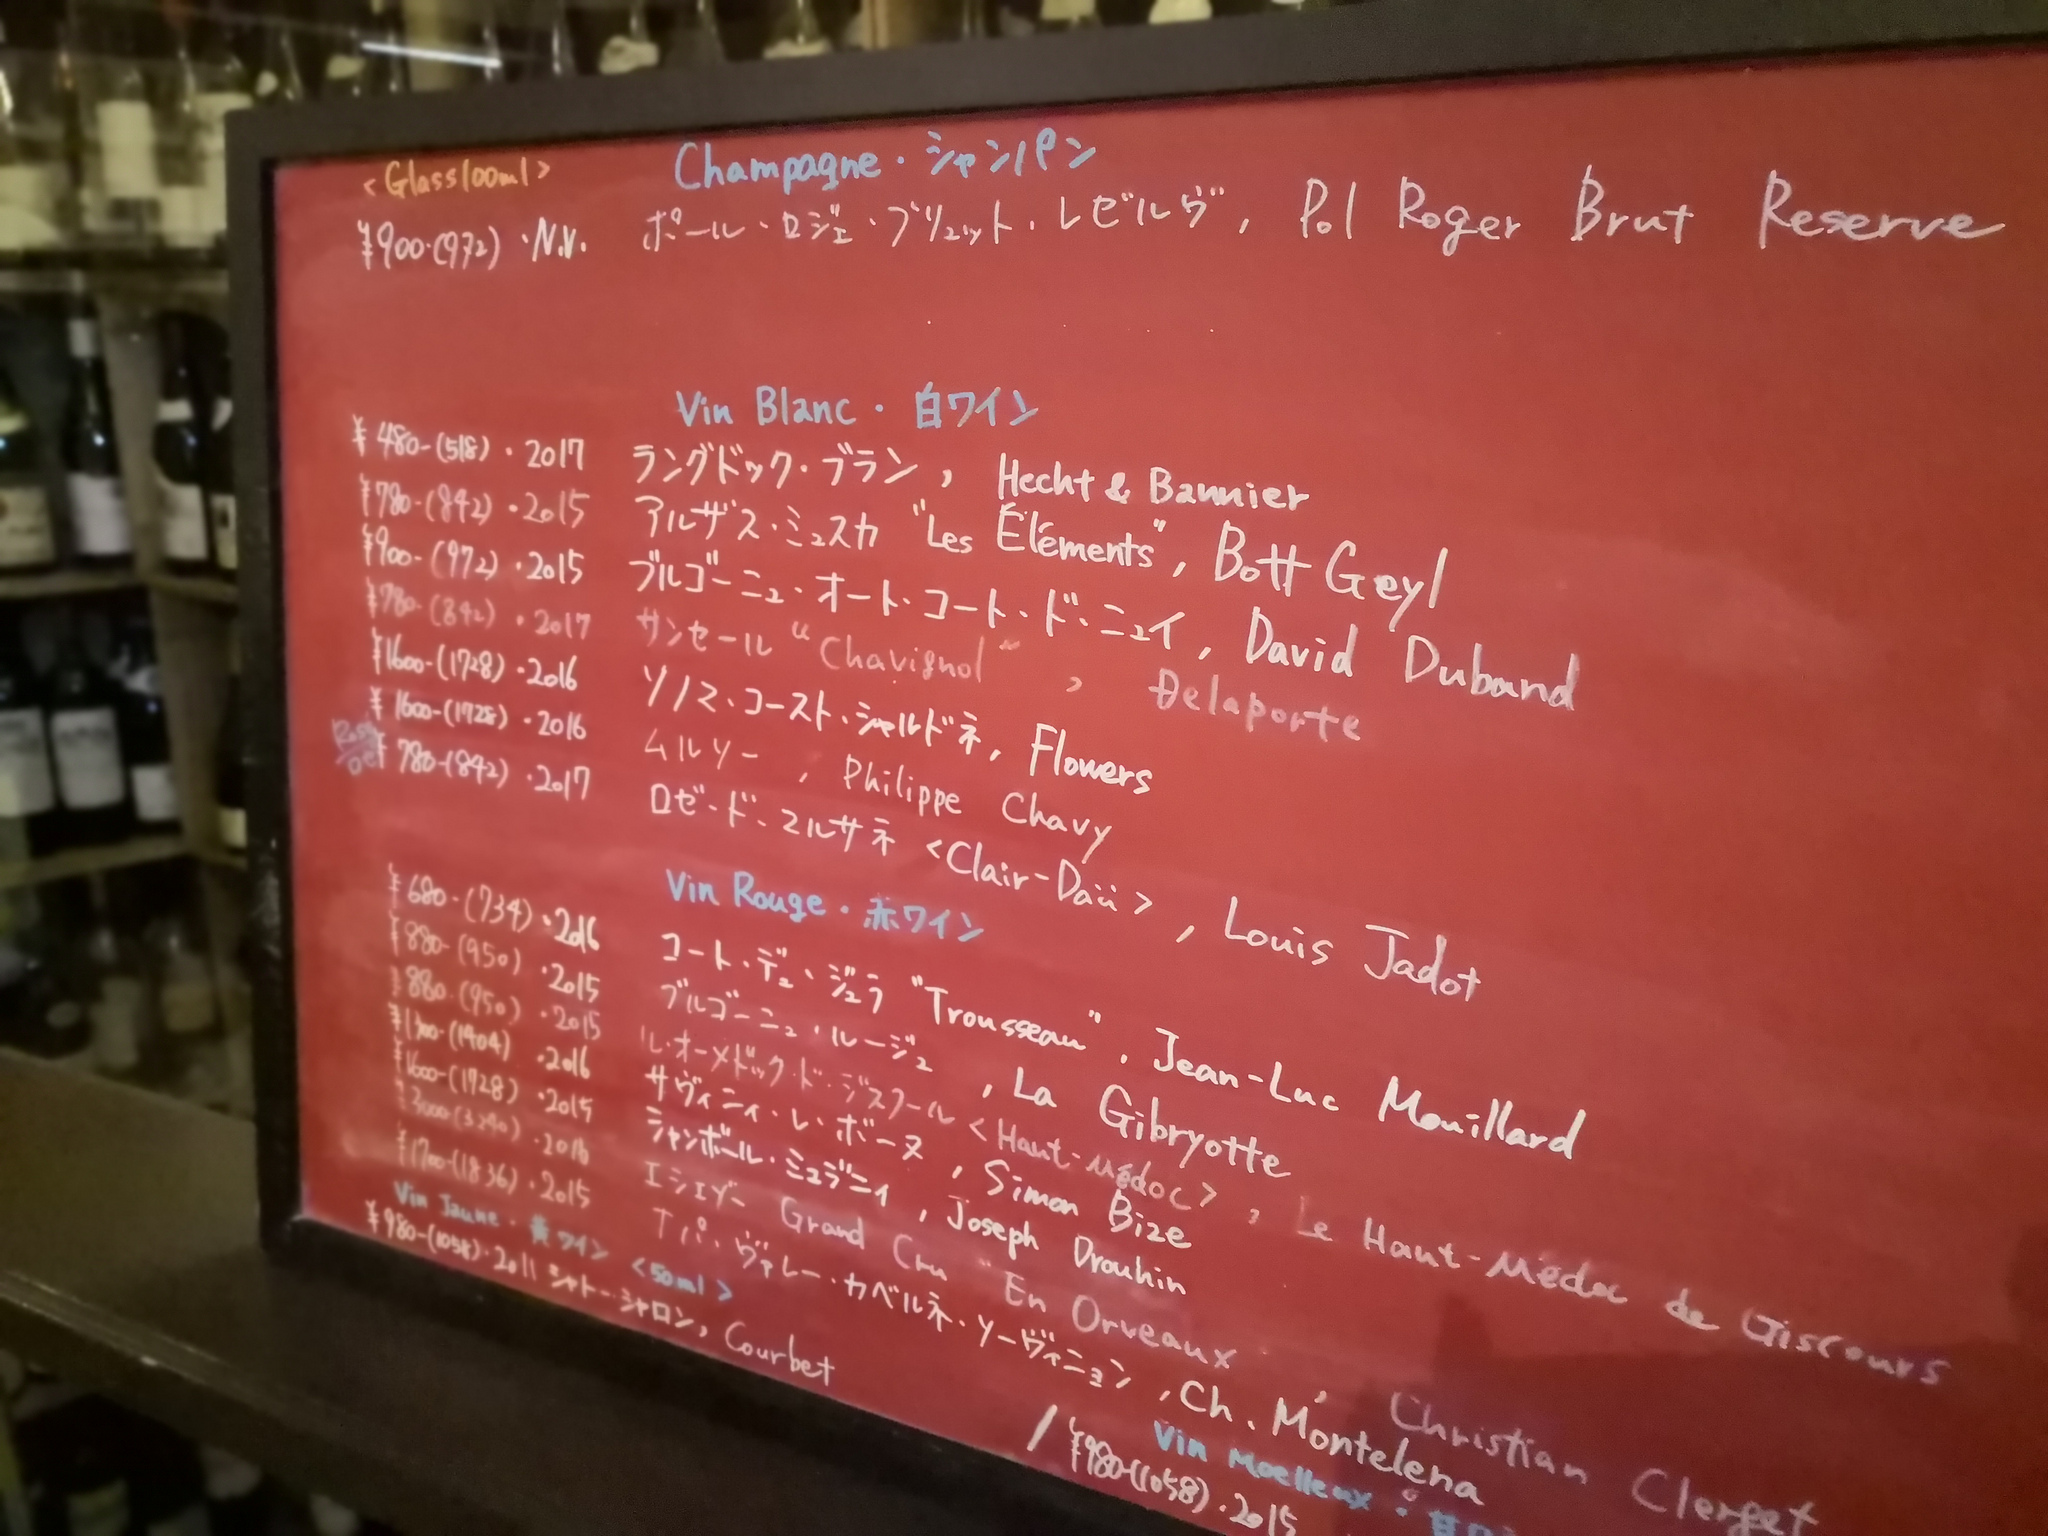 <Glass100ml> Champagne・シャンパン
¥900-(972)・N.V. ポール・ロジェ・ブリュット・レゼルヴ, Pol Roger Brut Reserve
Vin Blanc・白ワイン
¥480-(518)・2017 ラングドック・ブラン, Hecht & Bannier
¥780-(842)・2015 アルザス・ミュスカ "Les Éléments", Bott Geyl
¥900-(972)・2015 ブルゴーニュ・オート・コート・ド・ニュイ, David Duband
¥780-(842)・2017 サンセール "Chavignol", Delaporte
¥1600-(1728)・2016 ソノマ・コースト・シャルドネ, Flowers
¥1600-(1728)・2016 ムルソー, Philippe Chavy
¥780-(842)・2017 ロゼ・ド・マルサネ <Clair-Daü>, Louis Jadot
Vin Rouge・赤ワイン
¥680-(734)・2016 コート・デュ・ジュラ "Trousseau", Jean-Luc Mouillard
¥880-(950)・2015 ブルゴーニュ・ルージュ, La Gibryotte
¥880-(950)・2015 ル・オーメドック・ド・ジスクール <Haut-Médoc>, Le Haut-Médoc de Giscours
¥1300-(1404)・2016 サヴィニィ・レ・ボーヌ, Simon Bize
¥1600-(1728)・2015 シャンボール・ミュジニィ, Joseph Drouhin
¥3000-(3240)・2016 エシェゾー Grand Cru "En Orveaux", Christian Clerget
¥1700-(1836)・2015 ナパ・ヴァレー・カベルネ・ソーヴィニヨン, Ch. Montelena
Vin Jaune・黄ワイン <50ml>
¥980-(1058)・2011 シャトー・シャロン, Courbet
/ Vin Moelleux・甘ワ
¥980-(1058)・2015